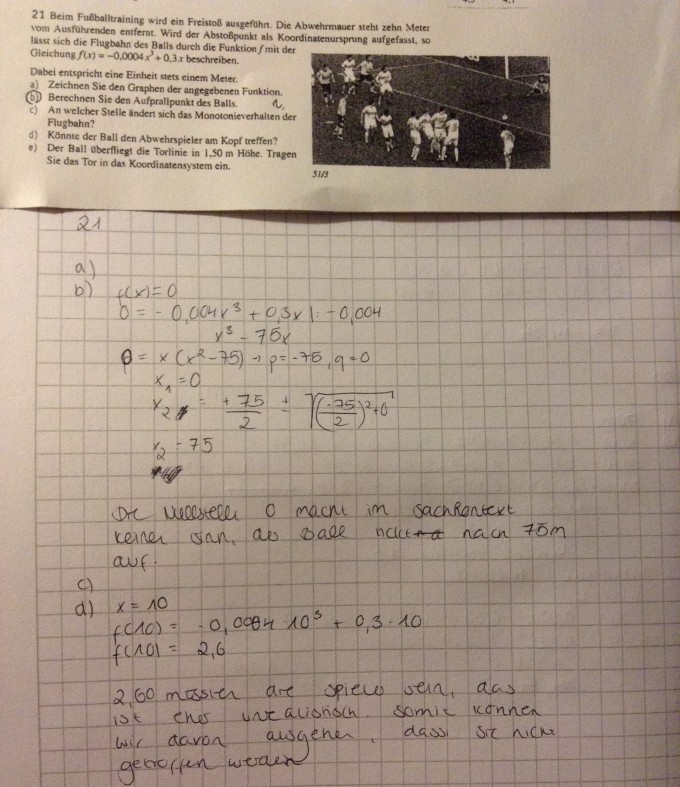 21 Beim Fußballtraining wird ein Freistoß ausgeführt. Die Abwehrmauer steht zehn Meter
vom Ausführenden entfernt. Wird der Abstoßpunkt als Koordinatenursprung aufgefasst, so
lässt sich die Flugbahn des Balls durch die Funktion f mit der
Gleichung f(x) = −0,0004x³ + 0,3x beschreiben.
Dabei entspricht eine Einheit stets einem Meter.
a) Zeichnen Sie den Graphen der angegebenen Funktion.
b) Berechnen Sie den Aufprallpunkt des Balls.
c) An welcher Stelle ändert sich das Monotonieverhalten der
Flugbahn?
d) Könnte der Ball den Abwehrspieler am Kopf treffen?
e) Der Ball überfliegt die Torlinie in 1,50 m Höhe. Tragen
Sie das Tor in das Koordinatensystem ein.
51/3
21
a)
b) f(x)=0
0 = - 0,004x³ + 0,3x |: -0,004
x³ - 75x
0 = x (x²-75) → p=-75, q=0
x₁ = 0
x₂ = +75/2 ± √((-75/2)²+0)
x₂ = 75
Die Nullstelle 0 macht im Sachkontext
keinen Sinn, der Ball nach 75m
auf.
c)
d) x = 10
f(10) = -0,0004 · 10³ + 0,3 · 10
f(10) = 2,6
2,60 müssten die Spieler sein, das
ist eher unrealistisch. Somit können
wir davon ausgehen, dass sie nicht
getroffen werden